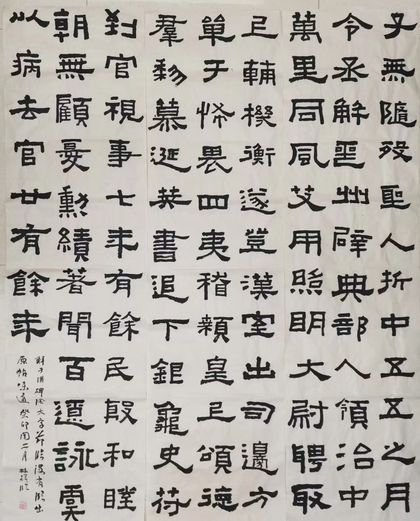 子無隨歿聖人折中五五之月
令丞解喪州辟典部入領治中
萬里同風艾用照明大尉聘取
上輔機衡遂登漢室出司邊方
單于怖畏四夷稽顙皇上頌德
羣黎慕涎英書追下銀龜史符
到官視事七年有餘民殷和睦
朝無顧憂勳績著聞百遼詠虞
以病去官廿有餘年
癸卯閏二月